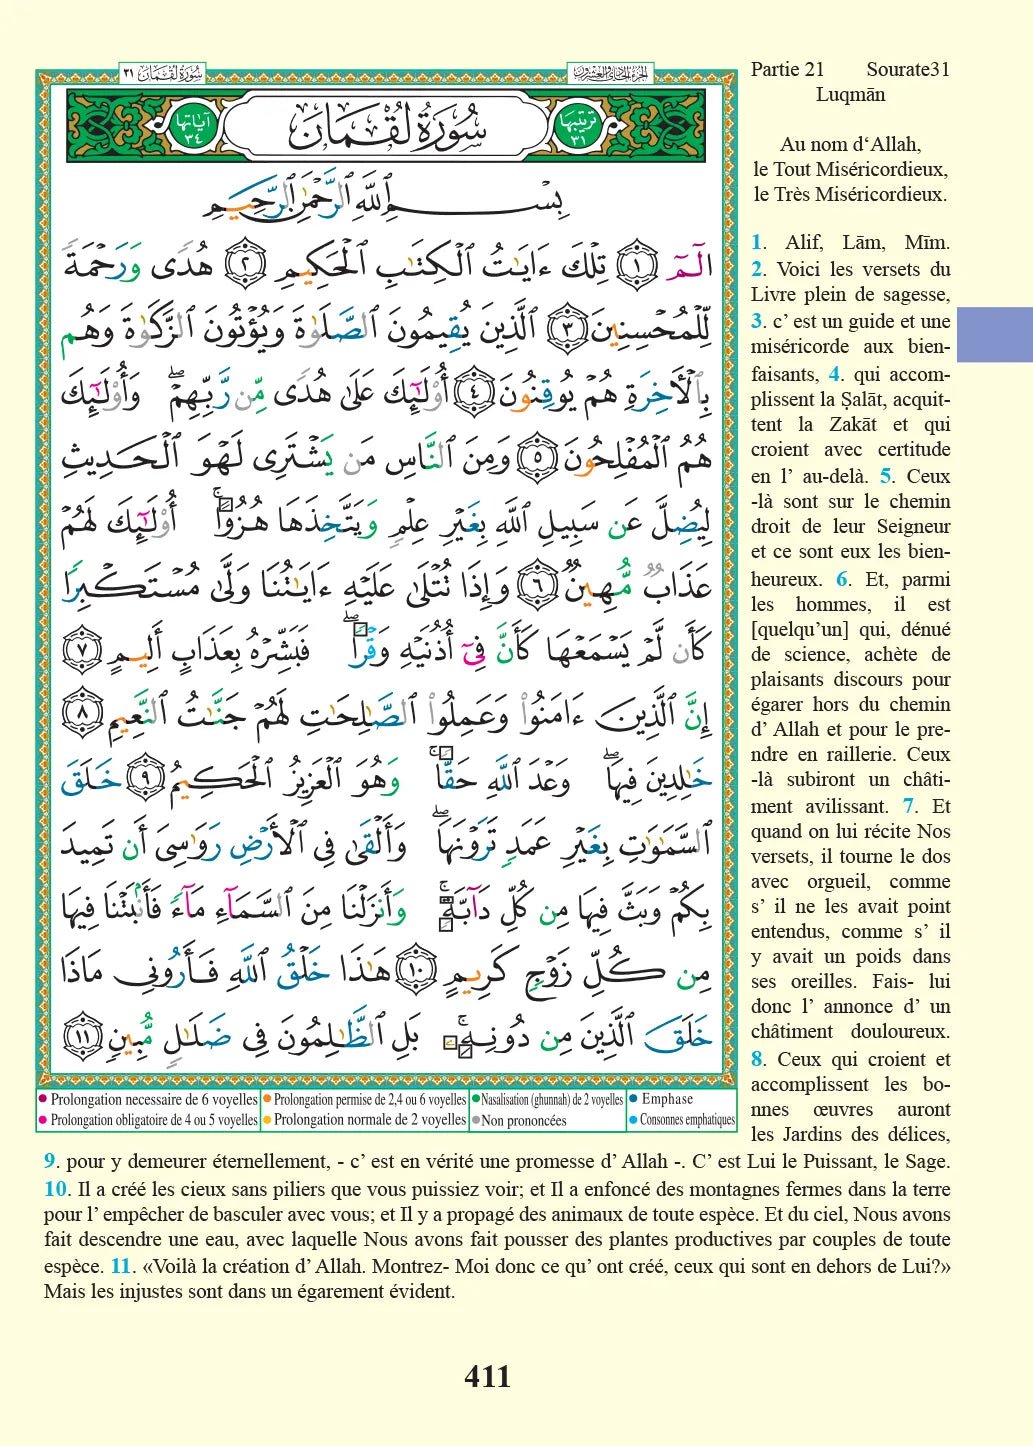 سُورَةُ لُقْمَان ٣١
الجزء الحادي والعشرون
Partie 21 Sourate31
Luqmān
ترتيبها ٣١
سُورَةُ لُقْمَان
آياتها ٣٤
بِسْمِ ٱللَّهِ ٱلرَّحْمَٰنِ ٱلرَّحِيمِ
الٓمٓ ١ تِلْكَ ءَايَٰتُ ٱلْكِتَٰبِ ٱلْحَكِيمِ ٢ هُدًى وَرَحْمَةً
لِّلْمُحْسِنِينَ ٣ ٱلَّذِينَ يُقِيمُونَ ٱلصَّلَوٰةَ وَيُؤْتُونَ ٱلزَّكَوٰةَ وَهُم
بِٱلْأَخِرَةِ هُمْ يُوقِنُونَ ٤ أُوْلَٰٓئِكَ عَلَىٰ هُدًى مِّن رَّبِّهِمْۖ وَأُوْلَٰٓئِكَ
هُمُ ٱلْمُفْلِحُونَ ٥ وَمِنَ ٱلنَّاسِ مَن يَشْتَرِى لَهْوَ ٱلْحَدِيثِ
لِيُضِلَّ عَن سَبِيلِ ٱللَّهِ بِغَيْرِ عِلْمٍ وَيَتَّخِذَهَا هُزُوًاۚ أُوْلَٰٓئِكَ لَهُمْ
عَذَابٌ مُّهِينٌ ٦ وَإِذَا تُتْلَىٰ عَلَيْهِ ءَايَٰتُنَا وَلَّىٰ مُسْتَكْبِرًا
كَأَن لَّمْ يَسْمَعْهَا كَأَنَّ فِىٓ أُذُنَيْهِ وَقْرًاۖ فَبَشِّرْهُ بِعَذَابٍ أَلِيمٍ ٧
إِنَّ ٱلَّذِينَ ءَامَنُوا۟ وَعَمِلُوا۟ ٱلصَّٰلِحَٰتِ لَهُمْ جَنَّٰتُ ٱلنَّعِيمِ ٨
خَٰلِدِينَ فِيهَاۖ وَعْدَ ٱللَّهِ حَقًّاۚ وَهُوَ ٱلْعَزِيزُ ٱلْحَكِيمُ ٩ خَلَقَ
ٱلسَّمَٰوَٰتِ بِغَيْرِ عَمَدٍ تَرَوْنَهَاۖ وَأَلْقَىٰ فِى ٱلْأَرْضِ رَوَٰسِىَ أَن تَمِيدَ
بِكُمْ وَبَثَّ فِيهَا مِن كُلِّ دَآبَّةٍۚ وَأَنزَلْنَا مِنَ ٱلسَّمَآءِ مَآءً فَأَنۢبَتْنَا فِيهَا
مِن كُلِّ زَوْجٍ كَرِيمٍ ١٠ هَٰذَا خَلْقُ ٱللَّهِ فَأَرُونِى مَاذَا
خَلَقَ ٱلَّذِينَ مِن دُونِهِۦۚ بَلِ ٱلظَّٰلِمُونَ فِى ضَلَٰلٍ مُّبِينٍ ١١
Prolongation necessaire de 6 voyelles
Prolongation permise de 2,4 ou 6 voyelles
Nasalisation (ghunnah) de 2 voyelles
Emphase
Prolongation obligatoire de 4 ou 5 voyelles
Prolongation normale de 2 voyelles
Non prononcées
Consonnes emphatiques
Au nom d‘Allah,
le Tout Miséricordieux,
le Très Miséricordieux.
1. Alif, Lām, Mīm.
2. Voici les versets du
Livre plein de sagesse,
3. c’ est un guide et une
miséricorde aux bien-
faisants, 4. qui accom-
plissent la Ṣalāt, acquit-
tent la Zakāt et qui
croient avec certitude
en l’ au-delà. 5. Ceux
-là sont sur le chemin
droit de leur Seigneur
et ce sont eux les bien-
heureux. 6. Et, parmi
les hommes, il est
[quelqu’un] qui, dénué
de science, achète de
plaisants discours pour
égarer hors du chemin
d’ Allah et pour le pre-
ndre en raillerie. Ceux
-là subiront un châti-
ment avilissant. 7. Et
quand on lui récite Nos
versets, il tourne le dos
avec orgueil, comme
s’ il ne les avait point
entendus, comme s’ il
y avait un poids dans
ses oreilles. Fais- lui
donc l’ annonce d’ un
châtiment douloureux.
8. Ceux qui croient et
accomplissent les bo-
nnes œuvres auront
les Jardins des délices,
9. pour y demeurer éternellement, - c’ est en vérité une promesse d’ Allah -. C’ est Lui le Puissant, le Sage.
10. Il a créé les cieux sans piliers que vous puissiez voir; et Il a enfoncé des montagnes fermes dans la terre
pour l’ empêcher de basculer avec vous; et Il y a propagé des animaux de toute espèce. Et du ciel, Nous avons
fait descendre une eau, avec laquelle Nous avons fait pousser des plantes productives par couples de toute
espèce. 11. «Voilà la création d’ Allah. Montrez- Moi donc ce qu’ ont créé, ceux qui sont en dehors de Lui?»
Mais les injustes sont dans un égarement évident.
411